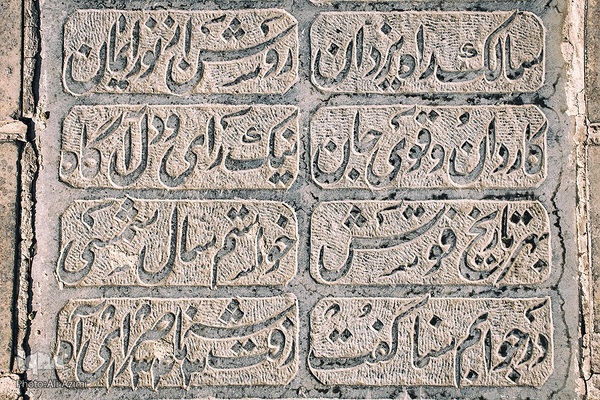 سالک راه یزدان روشن از نور ایمان
کاردان و قوی جان نیک رای و دل آگاه
بهر تاریخ فوتش خواستم سال شمسی
در جوابم سنا گفت رفت ناصر ای آه
Photo:Ali Azimi